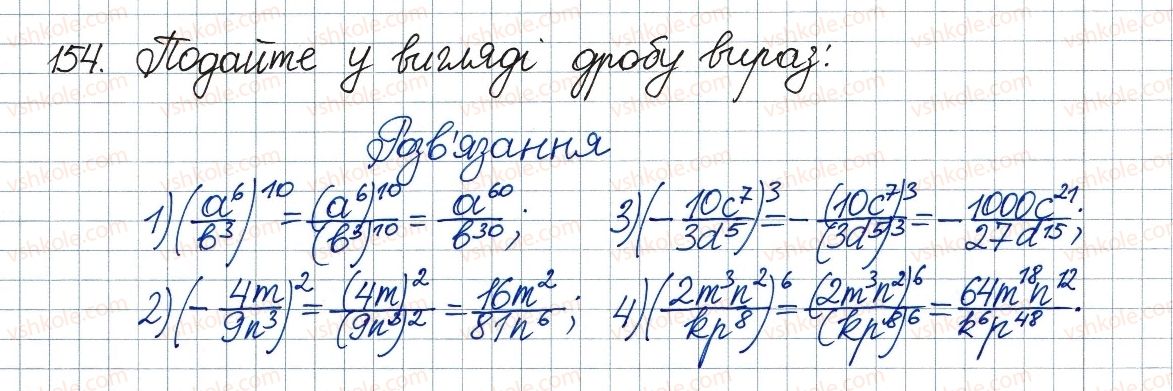 154. Подайте у вигляді дробу вираз:
Розв'язання
1) (a⁶/b³)¹⁰ = (a⁶)¹⁰/(b³)¹⁰ = a⁶⁰/b³⁰; 3) (- 10c⁷/3d⁵)³ = - (10c⁷)³/(3d⁵)³ = - 1000c²¹/27d¹⁵;
2) (- 4m/9n³)² = (4m)²/(9n³)² = 16m²/81n⁶; 4) (2m³n²/kp⁸)⁶ = (2m³n²)⁶/(kp⁸)⁶ = 64m¹⁸n¹²/k⁶p⁴⁸.